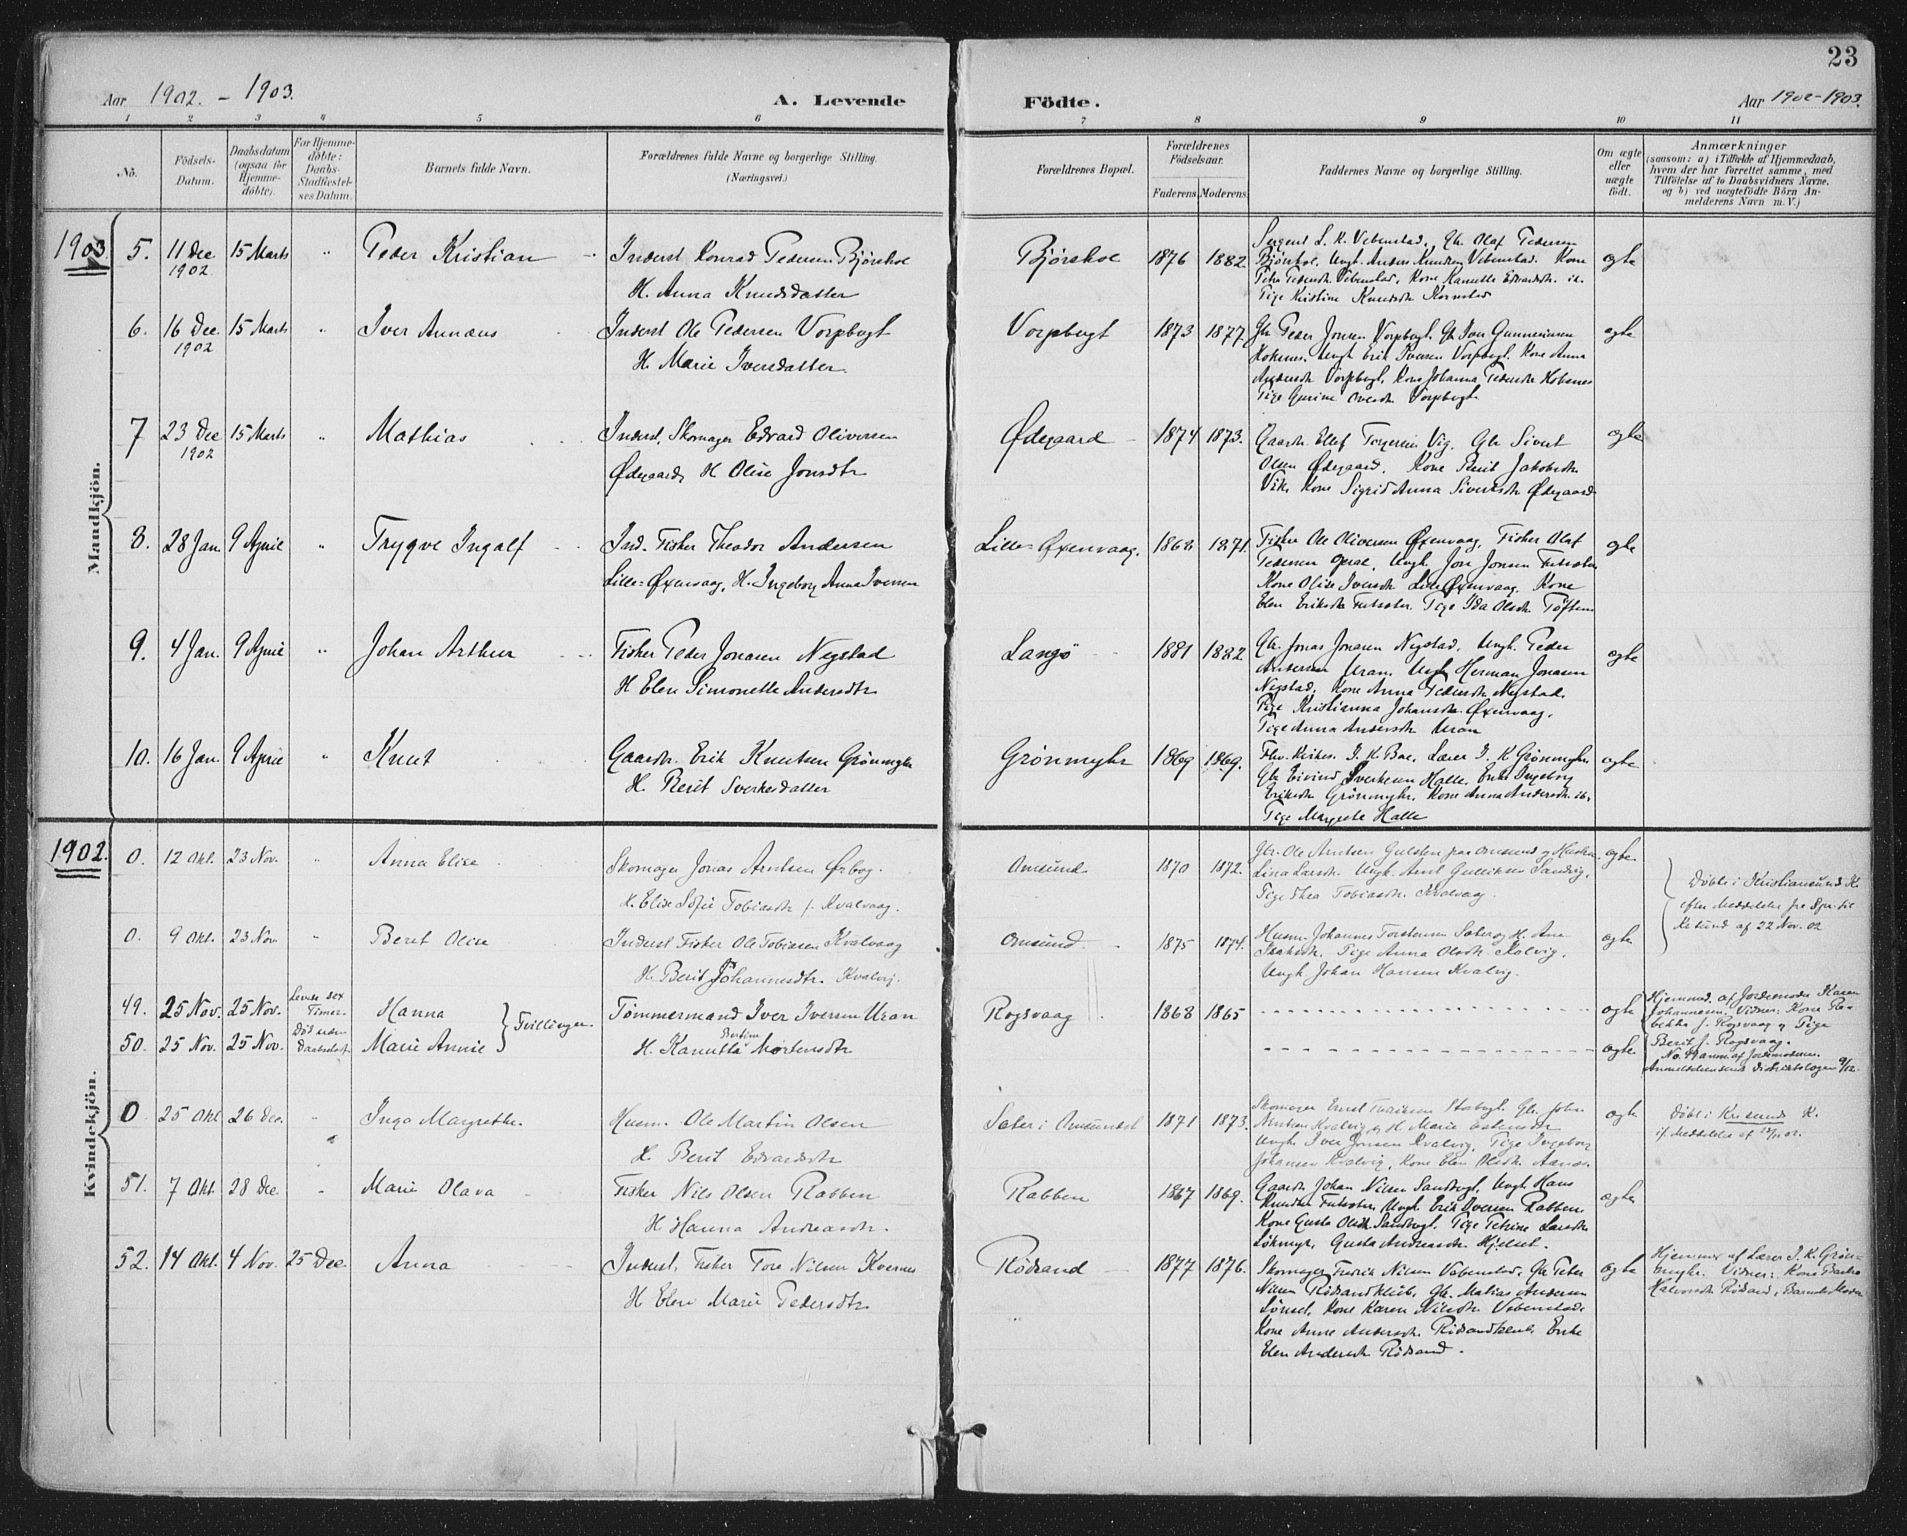 23
Aar 1902. - 1903.
A. Levende
Födte.
Aar 1902-1903.
1 2 3 4 5 6 7 8 9 10 11
No.
Födsels-
Datum.
Daabsdatum
(ogsaa for
Hjemme-
døbte).
For Hjemme-
døbte:
Daabs-
Stadfæstel-
ses Datum.
Barnets fulde Navn.
Forældrenes fulde Navne og borgerlige Stilling.
(Næringsvei.)
Forældrenes Bopæl.
Forældrenes
Födselsaar.
Faderens. Moderens.
Faddernes Navne og borgerlige Stilling.
Om ægte
eller
uægte
födt.
Anmærkninger
(saasom: a) i Tilfælde af Hjemmedaab,
hvem der har forrettet samme, med
Tilföielse af to Daabsvidners Navne,
og b) ved uægtefödte Börn An-
melderens Navn m. V.)
Mandkjön.
1903
5. 11 Dec 15 Marts " Peder Kristian Inderst Konrad Pedersen Bjørskol
1902
H. Anna Knudsdatter
Bjørskol 1876 1882. ægte
Sergent L. K. Vebenstad, Gbr Olaf Pedersen
Bjørskol, Ungk. Anders Knudsen Vebenstad. Kone
Petra Pedersdtr Vebenstad, Kone Kanutte Edvardsdtr. ib.
Pige Kristine Knudsdtr Kornstad
6. 16 Dec 15 Marts " Iver Annæus Inderst Ole Pedersen Vorpbugt
1902
H. Marie Iversdatter
Vorpbugt 1873 1877. ægte
Gbr Peder Jonsen Vorpbugt. Gbr Iver Gunneriussen
Hoksnes. Ungk Erik Iversen Vorpbugt. Kone Anna
Andersdtr Vorpbugt, Kone Johanna Pedersdtr Hoksnes
Pige Gurine Olesdtr Vorpbugt
7 23 Dec 15 Marts " Mathias Inderst. Skomager Edvard Oliversen
1902
Ødegaard, H Olise Jonsdtr
Ødegaard 1874 1873. ægte
Gaardbr. Ellef Torgersen Vig. Gbr Sivert
Olsen Ødegaard. Kone Berit Jakobsdtr
Vik, Kone Sigrid Anna Sivertsdtr Ødegaard
8. 28 Jan. 9 April " Trygve Ingolf Ind. Fisker Theodor Andersen
Lille-Øxenvaag, H. Ingeborg Anna Iversen
Lille-Øxenvaag. 1868 1871. ægte
Fisker Ole Oliversen Øxenvaag, Fisker Olaf
Pedersen Ungk Jon Jonsen Futsæter
Kone Olise Iversdtr Lille Øxenvaag. Kone
Elen Eriksdtr Futsæter. Pige Ida Olsdtr Töften
9. 4 Jan. 9 April " Johan Arthur Fisker Peder Jonasen Negstad
H Elen Simonette Andersdtr
Langø 1881 1882. ægte
Gbr. Jonas Jonasen Negstad, Ungk. Peder
Andersen Uran. Ungk Herman Jonasen
Negstad, Kone Anna Pedersdtr Negstad
Pige Kristianna Johansdtr. Øxenvaag,
Pige Anna Andersdtr Uran
10. 16 Jan. 9 April " Knut Gaardbr. Erik Knutsen Grönmyhr
H. Berit Sverkesdatter
Grönmyhr 1869 1869. ægte
Fhv. Kirkes. I. K. Boe, Lærer I. K Grönmyhr
Gbr Eivind Sverkesen Halle. Enke Ingeborg
Eriksdtr Grönmyhr, Kone Anna Andersdtr ib.
Pige Margrete Halle
Kvindekjön.
1902.
0. 12 Okt. 23 Nov. " Anna Elise Skomager Jonas Arntsen Ørbog.
H. Elise Sofie Tobiasdtr f. Kvalvaag.
Omsund. 1870 1872. ægte
Gbr. Ole Arntsen Gulsten paa Omsund og Hustru
Lina Larsdtr. Ungk. Arnt Gulliksen Sandvig,
Pige Thea Tobiasdtr Kvalvaag.
Döbte i Kristiansund K.
efter Meddelelse fra Spr. til
Krsund af 22 Nov. 02
0. 9 Okt. 23 Nov. " Beret Olise Inderst Fisker Ole Tobiassen Kvalvaag
H. Berit Johannesdtr. Kvalvig.
Omsund. 1875 1874. ægte
Husm. Johannes Torstensen Sæter og H. Ane
Isaksdtr. Pige Anna Olsdtr Kvalvig,
Ungk Johan Hansen Kvalvig.
49. 25 Nov. 25 Nov. Levede sex Timer. Hanna
50. 25 Nov. 25 Nov. Død uden Daabsstadf. Marie Annie
Tvillinger.
Tømmermand Iver Iversen Uran
H. Kanutta Bertine Mortensdtr
Rogsvaag 1868 1865 ægte
ægte
Hjemmed. af Jordemoder Karen
Johannesen. Vidner: Kone Re-
bekka f. Rogsvaag og Pige
Berit f. Rogsvaag.
No. 2 anm. af Jordemoderen.
Anmeldelse sendt Distriktslægen 9/12.
0 25 Okt 26 Dec. " Inga Margrethe. Husm. Ole Martin Olsen
H. Berit Edvardsdtr
Sæter i Omsundet 1871 1873. ægte
Skomager Ernst Storbugt. Gbr. John
Arntsen Kvalvig og H Marie Estensdtr
Ungk Iver Jonsen Kvalvig, Pige Ingeborg
Johansen Kvalvig, Kone Elen Olsdtr.
Döbt i Krsunds K.
if. Meddelelse af
51. 7 Okt. 28 Dec. " Marie Olava Fisker Nils Olsen Rabben
H Hanna Andreasdtr.
Rabben 1867 1869. ægte
Gaardbr Johan Nilsen Sandbugt, Ungk Hans
Knudsen Futsæter, Ungk Erik Iversen Rabben
Kone Gusta Olsdtr Sandbugt, Pige Petrine Larsdtr
Løkmyr, Gusta Andreasdtr Hjelset.
52. 14 Okt. 4 Nov. 25 Dec. Anna Inderst. Fisker Tore Nilsen Kvernes
H Elen Marie Pedersdtr
Rödsand 1877 1876. ægte
Skomager Fredrik Nilsen Vebenstad, Gbr Peter
Nilsen Rödsandkleb, Gbr. Matias Andersen
Sönsel, Kone Karen Nilsdtr Vebenstad
Kone Anne Andersdtr. Rödsandkleb, Enke
Elen Andersdtr Rödsand.
Hjemmed af Lærer I. K. Grön-
myhr. Vidner: Kone
Halvorsdtr Rödsand, Barnets Moder